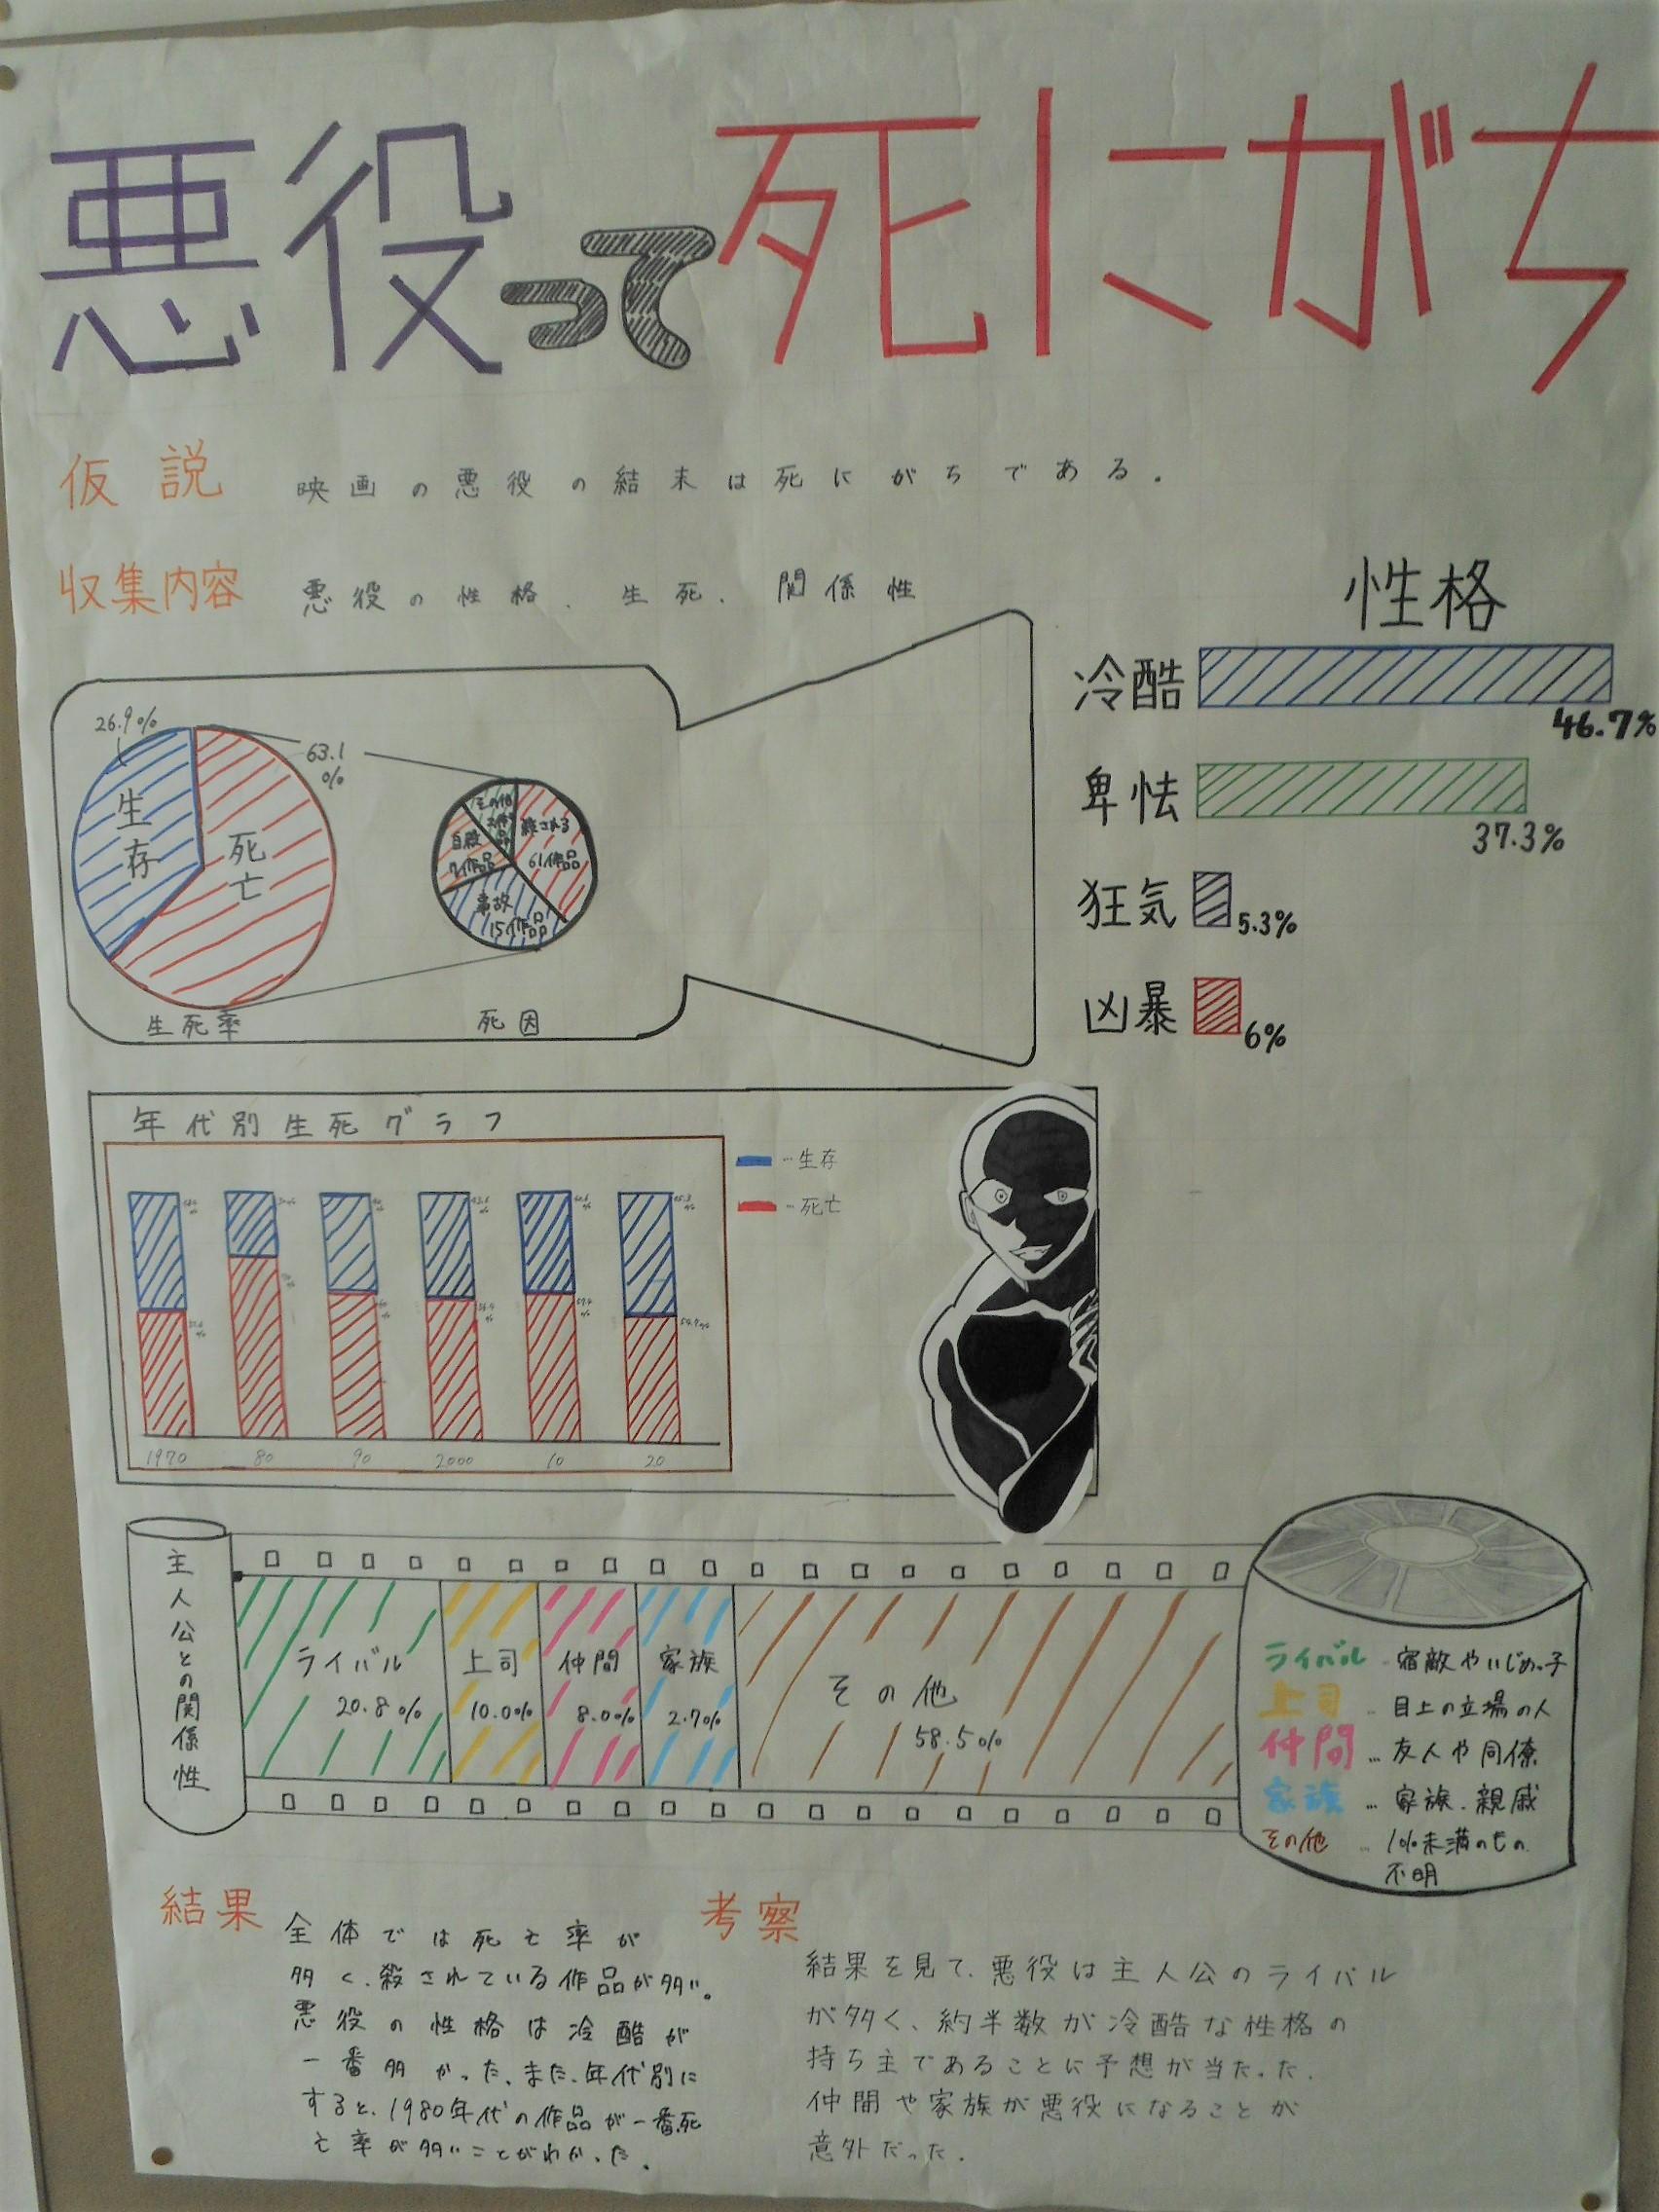 悪役って死にがち
仮説 映画の悪役の結末は死にがちである.
収集内容 悪役の性格、生死、関係性
性格
冷酷
46.7%
卑怯
37.3%
狂気 5.3%
凶暴 6%
26.9%
63.1
%
生存
死亡
その他
殺される
61作品
自殺
7作品
事故
15作品
生死率
死因
年代別生死グラフ
…生存
…死亡
1970 80 90 2000 10 20
主人公との関係性
ライバル
20.8%
上司
10.0%
仲間
8.0%
家族
2.7%
その他
58.5%
ライバル…宿敵やいじめっ子
上司…目上の立場の人
仲間…友人や同僚
家族…家族、親戚
その他…1%未満のもの
不明
結果
全体では死亡率が
多く、殺されている作品が多い。
悪役の性格は冷酷が
一番多かった、また、年代別に
すると、1980年代の作品が一番死
亡率が多いことがわかった.
考察
結果を見て、悪役は主人公のライバル
が多く、約半数が冷酷な性格の
持ち主であることに予想が当たった.
仲間や家族が悪役になることが
意外だった.